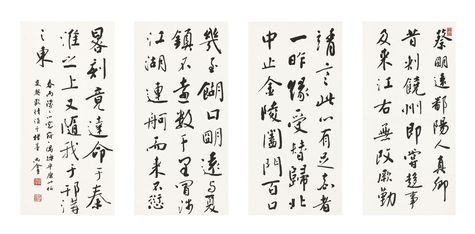 蔡明遠鄱陽人真卿
昔刺饒州即嘗趨事
及來江右無改厥勤
靖言此心有足嘉者
一昨緣受替歸北
中止金陵闔門百口
幾至餬口明遠與夏
鎮不遠數千里冒涉
江湖連舸而來不愆
晷刻竟達命于秦
淮之上又隨我于邗溝
之東